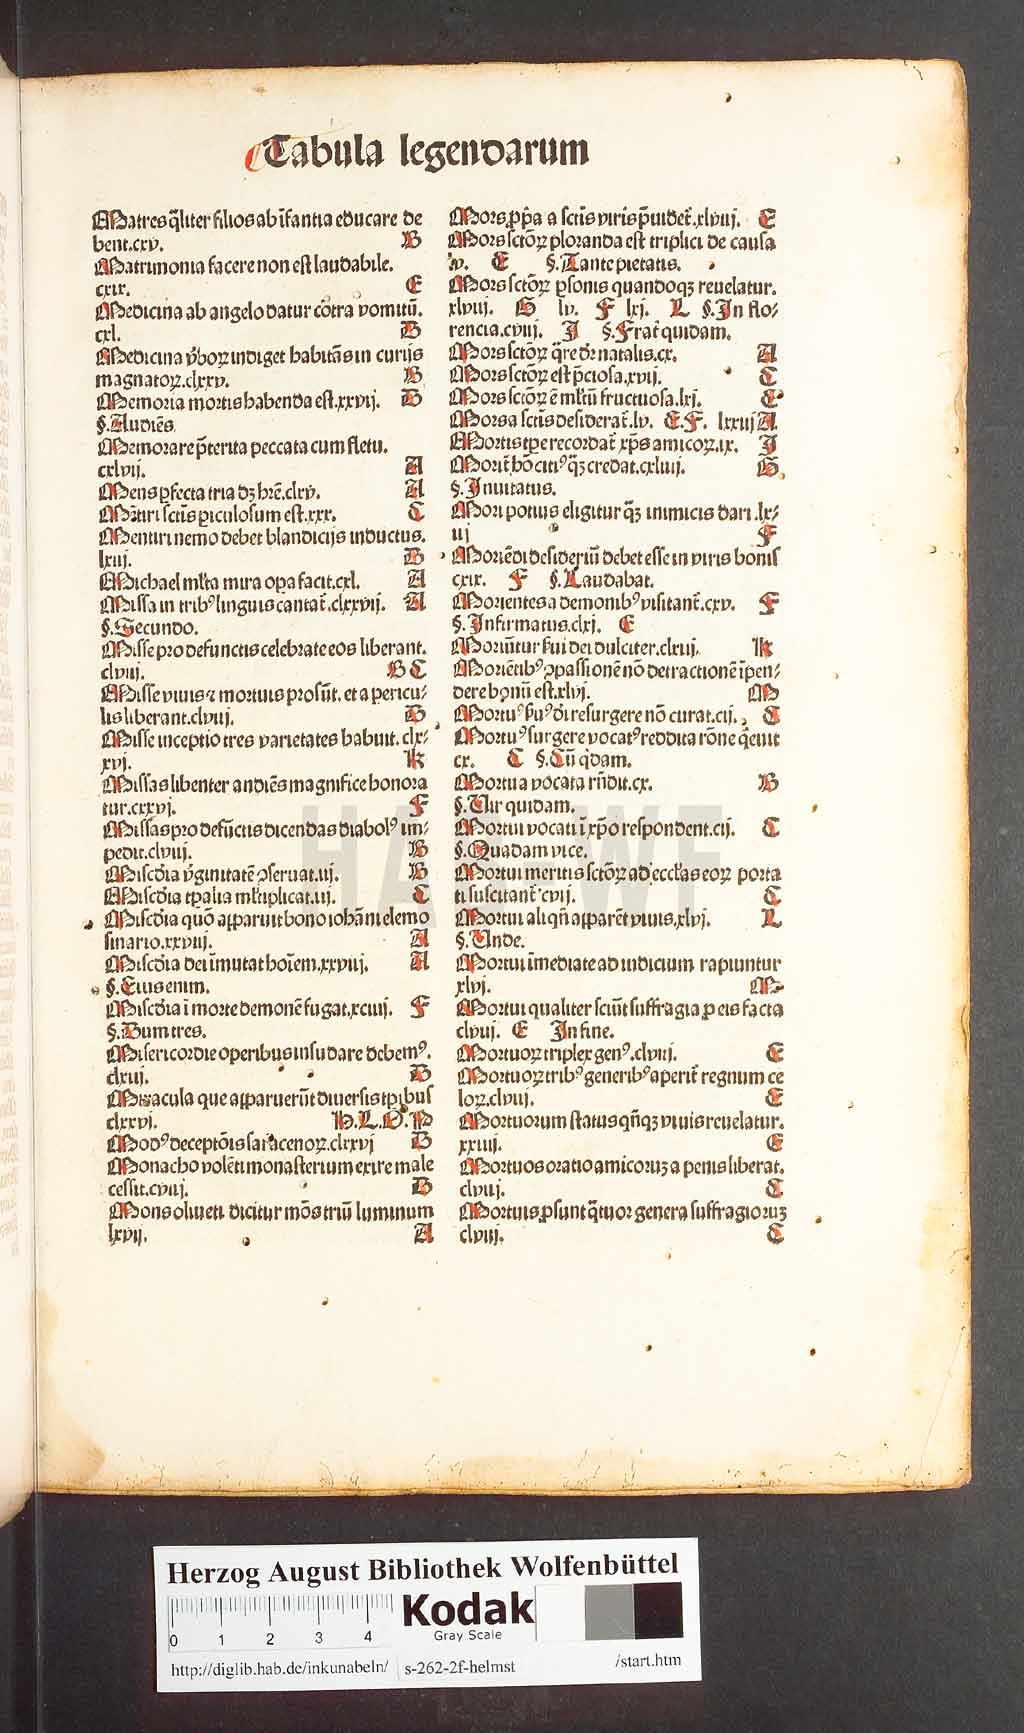 Tabula legendarum
Matres q̄liter filios ab īfantia educare de
bent.cxv. B
Matrimonia facere non est laudabile.
cxix. E
Medicina ab angelo datur cōtra vomitū.
cxl. B
Medicina v̓boꝝ indiget habitās in curijs
magnatoꝝ.clxxv. B
Memoria mortis habenda est.xxvij. B
§.Audiēs.
Memorare p̄terita peccata cum fletu.
cxlvij. A
Mens ꝑfecta tria dꝫ hr̄e.clxv. A
Mētiri sctīs ꝑiculosum est.xxx. C
Mentiri nemo debet blandicijs inductus.
lxiij. B
Michael ml̓ta mira oꝑa facit.cxl. A
Missa in tribꝰ linguis cantat᷑.clxxvij. A
§.Secundo.
Misse pro defunctis celebrate eos liberant.
clviij. B C
Misse viuis ⁊ mortuis prosūt. et a pericu⸗
lis liberant.clviij. B
Misse inceptio tres varietates habuit.clx⸗
xvi. K
Missas libenter audiēs magnifice honora
tur.cxxvj. F
Missas pro defūctis dicendas diabolꝰ im⸗
pedit.clviij. B
Mis̄cdia v̓ginitatē ꝯseruat.iij. B
Mis̄cdia tꝑalia ml̓tiplicat.iij. C
Mis̄cdia quō apparuit bono iohāni elemo
sinario.xxviij. A
Mis̄cdia dei īmutat hoīem.xxviij. A
§.Eius enim.
Mis̄cdia ī morte demonē fugat.xciij. F
§.Dum tres.
Misericordie operibus insudare debemꝰ.
clxij. B
Miracula que apparuerūt diuersis tꝑibus
clxxvj. H.L.O.P
Modꝰ deceptōis saracenoꝝ.clxxvj B
Monacho volēti monasterium exire male
cessit.cviij. B
Mons oliueti dicitur mōs triū luminum
lxvij. A
Mors ꝓpͥa a sctīs viris p̄uidet᷑.xlviij. E
Mors sctōꝝ ploranda est triplici de causa
lv. E §.Tante pietatis.
Mors sctōꝝ ꝑsonis quandoqꝫ reuelatur.
xlviij. G lv. F lxj. L §.In flo⸗
rencia.cviij. J §.Frat᷑ quidam.
Mors sctōꝝ q̄re dr̄ natalis.cx. A
Mors sctōꝝ est p̄ciosa.xvij. C
Mors sctōꝝ ē ml̓tū fructuosa.lxj. C
Mors a sctīs desiderat᷑.lv. E.F. lxxij A
Mortis tꝑe recordat᷑ xp̄s amicoꝝ.ix. J
Morit᷑ hō citiꝰ q̄ꝫ credat.cxliij. G
§.Inuitatus.
Mori potius eligitur q̄ꝫ inimicis dari.lx⸗
iij F
Moriēdi desideriū debet esse in viris bonis
cxix. F §.Laudabat.
Morientes a demonibꝰ visitant᷑.cxv. F
§.Infirmatus.clxj. E
Moriūtur ẜui dei dulciter.clxiij. K
Moriētibꝰ ꝯpassionē nō detractionē īpen⸗
dere bonū est.xlvj. M
Mortuꝰ ẜuꝰ dn̄i resurgere nō curat.cij. C
Mortuꝰ surgere vocatꝰ reddita rōne q̄euit
cx. C §.Cū q̓dam.
Mortua vocata rn̄dit.cx. B
§.Vir quidam.
Mortui vocati ī xp̄o respondent.cij. C
§.Quadam vice.
Mortui meritis sctōꝝ ad eccl̓as eoꝝ porta
ti suscitant᷑ cvij. C
Mortui aliqn̄ apparēt viuis.xlvj. L
§.Unde.
Mortui īmediate ad iudicium rapiuntur
xlvj. M
Mortui qualiter sciūt suffragia ꝑ eis facta
clviij. E In fine.
Mortuoꝝ triplex genꝰ.clviij. E
Mortuoꝝ tribꝰ generibꝰ aperit᷑ regnum ce
loꝝ.clviij. E
Mortuorum status qn̄qꝫ viuis reuelatur.
xxiij. E
Mortuos oratio amicoruꝫ a penis liberat.
clviij. C
Mortuis ꝓsunt q̄tuor genera suffragioruꝫ
clviij. C
HAB-WF
Herzog August Bibliothek Wolfenbüttel
0 1 2 3 4
Kodak
Gray Scale
http://diglib.hab.de/inkunabeln/ s-262-2f-helmst /start.htm